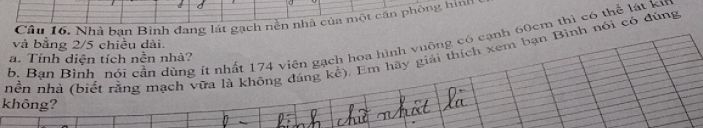 Câu 16. Nhà bạn Bình đang lát gạch nền nhà của một căn phòng hình
và bằng 2/5 chiều dài.
a. Tính diện tích nền nhà?
b. Bạn Bình nói cần dùng ít nhất 174 viên gạch hoa hình vuông có cạnh 60cm thì có thể lát kín
nền nhà (biết rằng mạch vữa là không đáng kể). Em hãy giải thích xem bạn Bình nói có đúng
không?
hình chữ nhật là